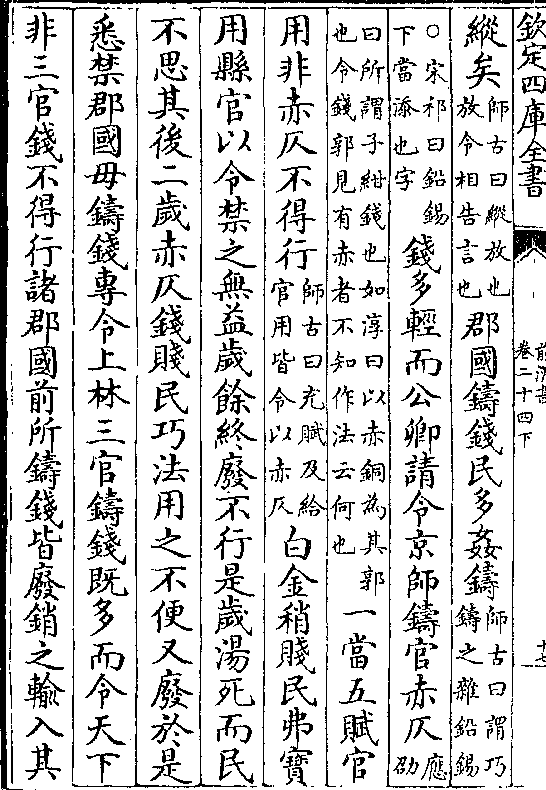 欽定四庫全書
前漢書
卷二十四下
十七
縱矣師古曰縱放也放令相告言也郡國鑄錢民多姦鑄師古曰謂巧鑄之雜鉛錫
○宋祁曰鉛錫下當添也字錢多輕而公卿請令京師鑄官赤仄應劭
曰所謂子紺錢也如淳曰以赤銅爲其郭也令錢郭見有赤者不知作法云何也一當五賦官
用非赤仄不得行師古曰充賦及給官用皆令以赤仄白金稍賤民弗寶
用縣官以令禁之無益歲餘終廢不行是歲湯死而民
不思其後二歲赤仄錢賤民巧法用之不便又廢於是
悉禁郡國毋鑄錢專令上林三官鑄錢既多而令天下
非三官錢不得行諸郡國前所鑄錢皆廢銷之輸入其